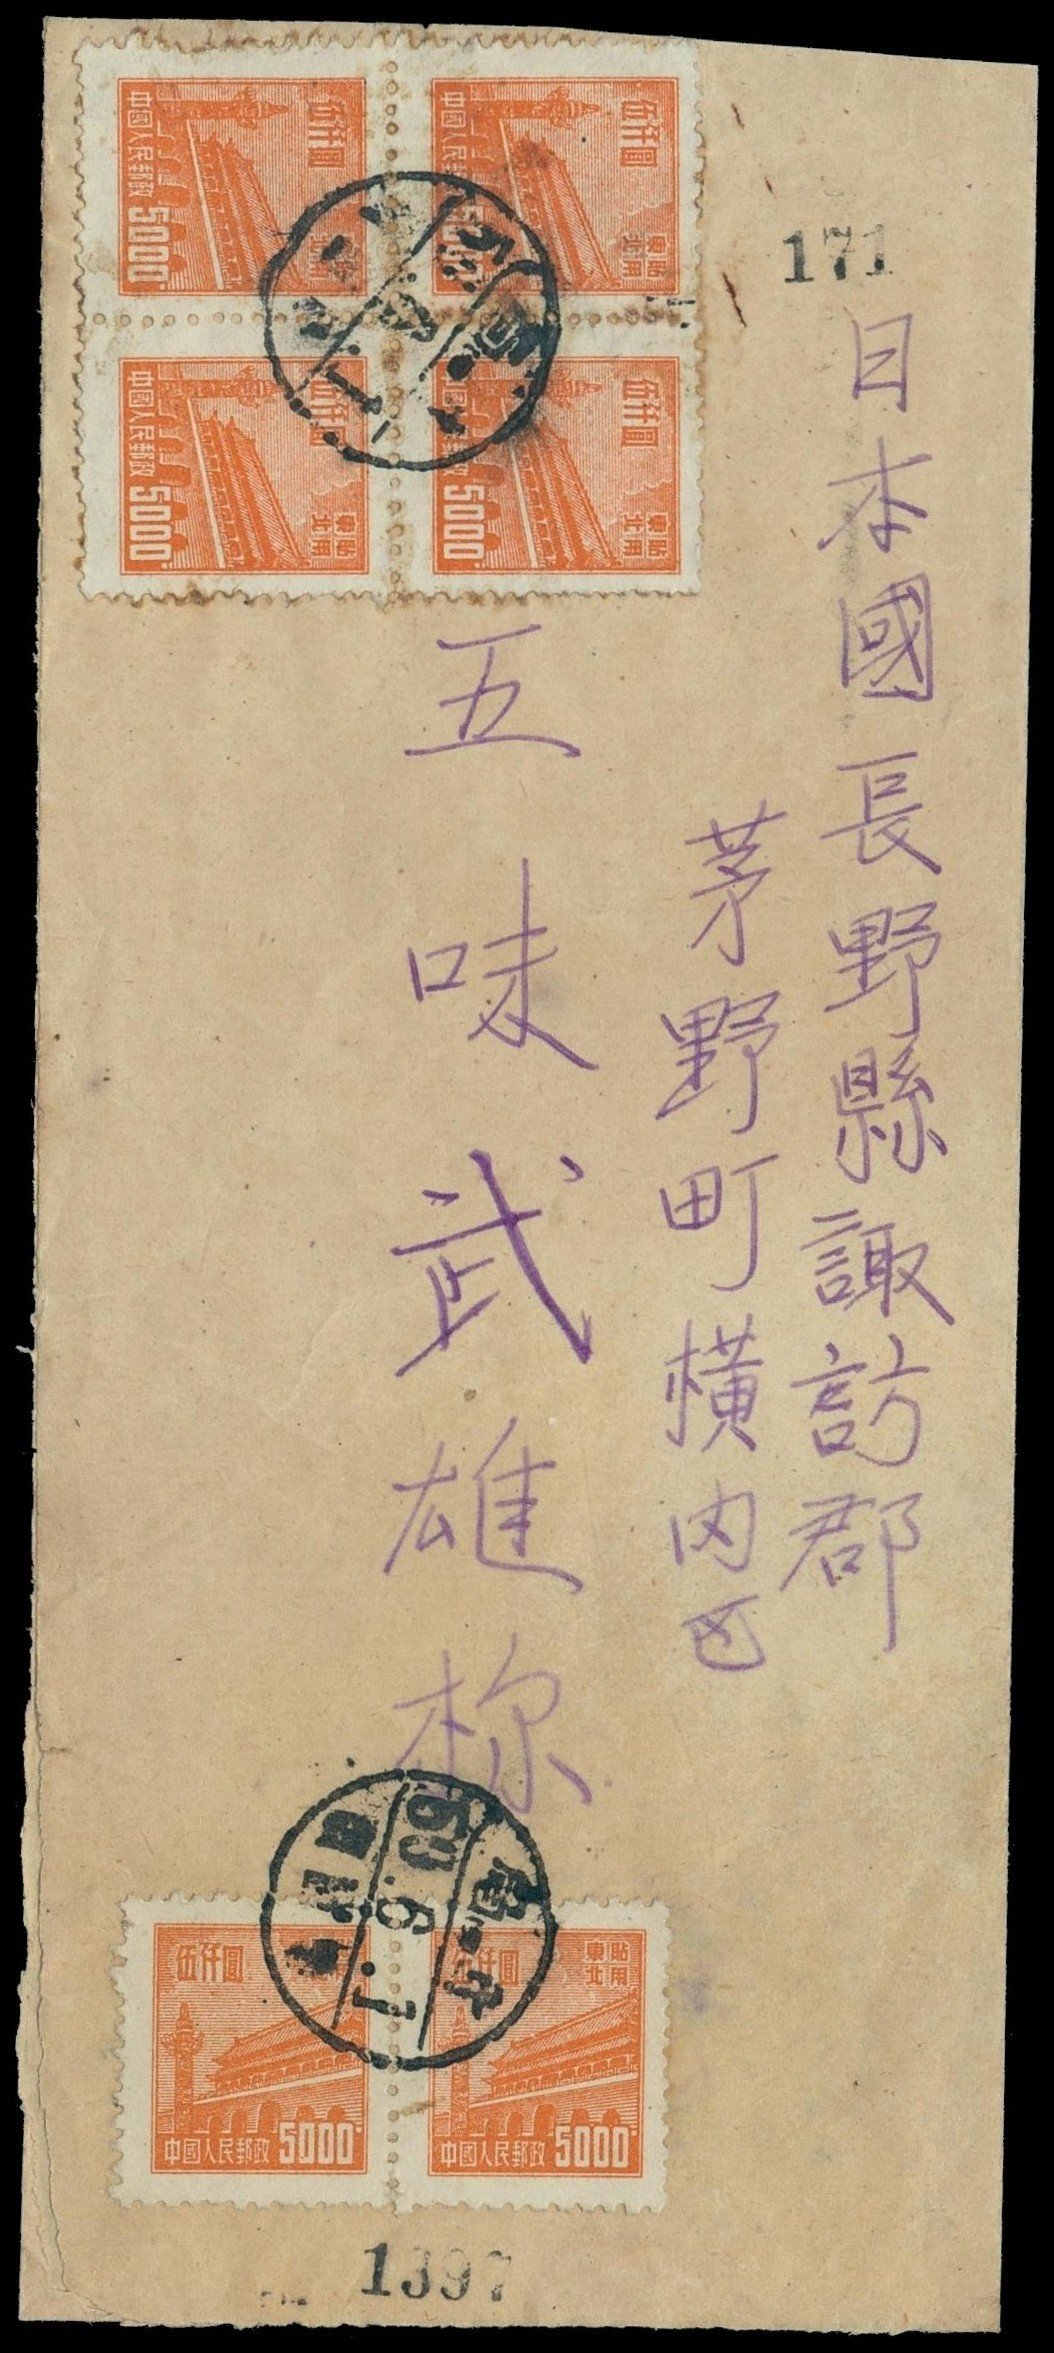 171
日本國長野縣諏訪郡
茅野町橫内区
五味武雄様
伍仟圓
東北貼用
中國人民郵政 5000
伍仟圓
東北貼用
中國人民郵政 5000
伍仟圓
東北貼用
中國人民郵政 5000
伍仟圓
東北貼用
中國人民郵政 5000
50.6.1
伍仟圓
中國人民郵政 5000
伍仟圓
東北貼用
中國人民郵政 5000
1397